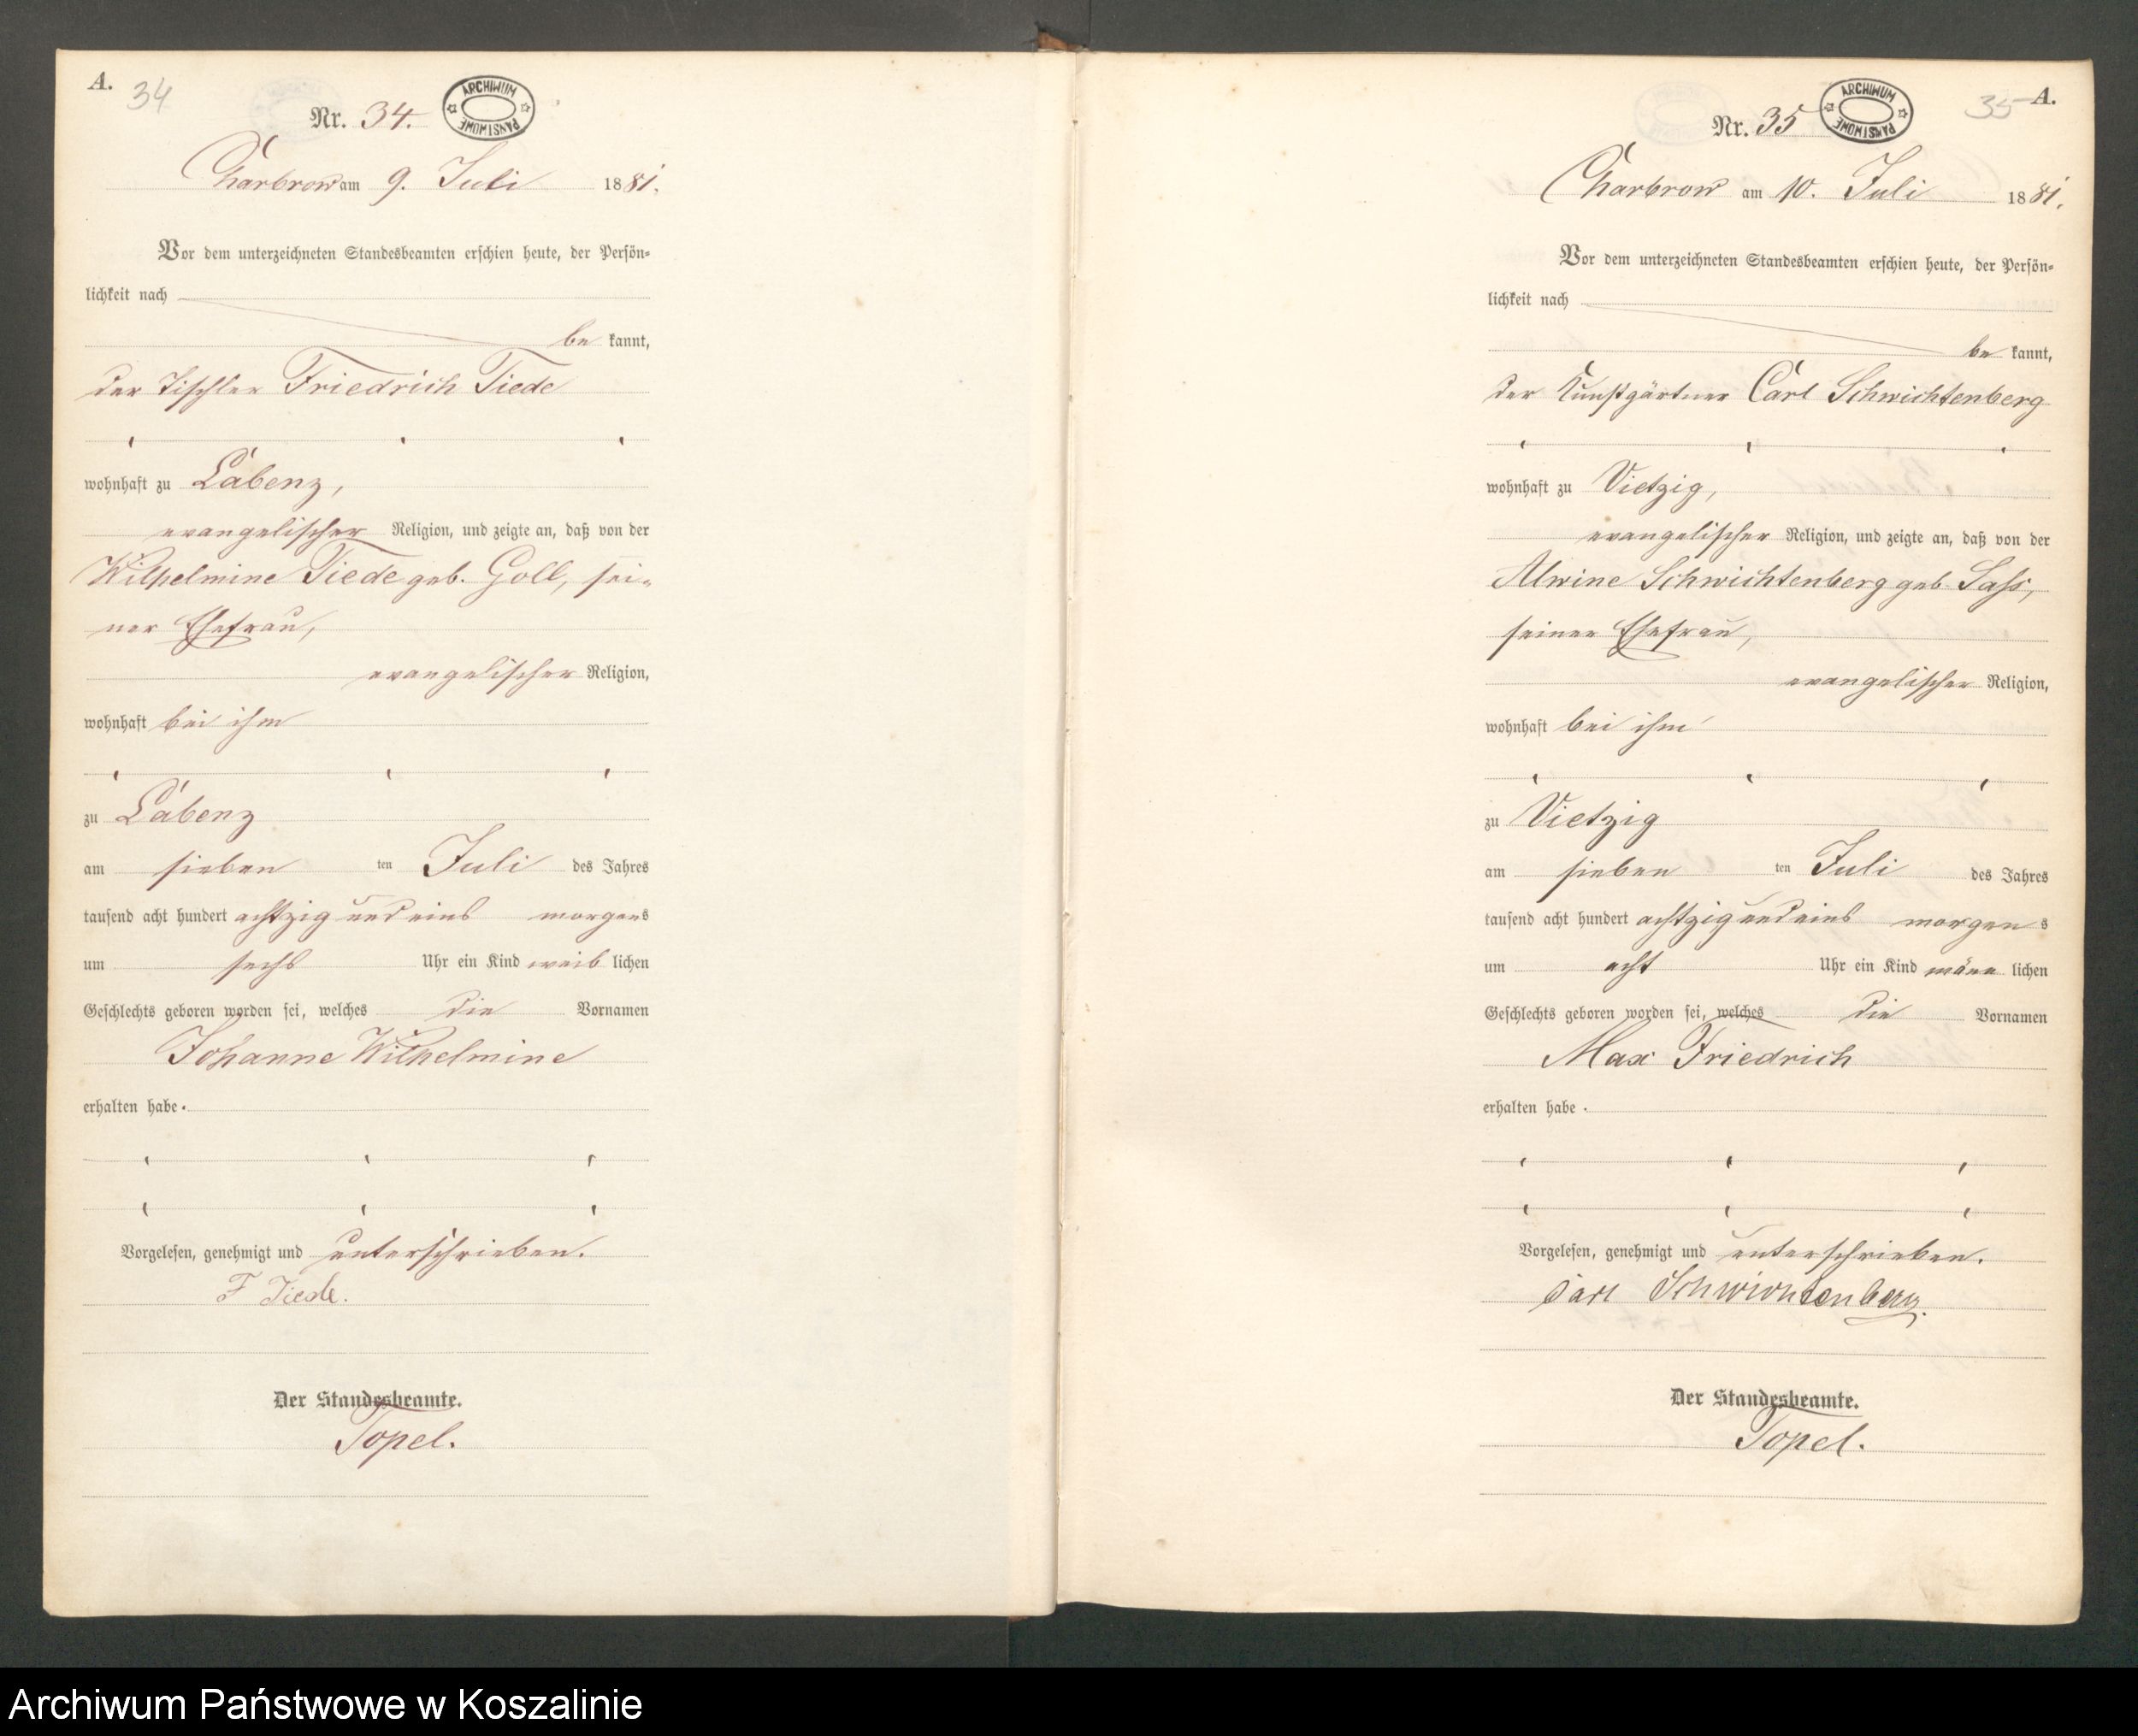 A.
34
Nr. 34.
ARCHIWUM PAŃSTWOWE
Charbrow am 9. Juli 1881.
Vor dem unterzeichneten Standesbeamten erschien heute, der Persön-
lichkeit nach
be kannt,
der Tischler Friedrich Tiede
wohnhaft zu Labenz,
evangelischer Religion, und zeigte an, daß von der
Wilhelmine Tiede geb. Goll, sei-
ner Ehefrau,
evangelischer Religion,
wohnhaft bei ihm
zu Labenz
am sieben ten Juli des Jahres
tausend acht hundert achtzig und eins morgens
um sechs Uhr ein Kind weib lichen
Geschlechts geboren worden sei, welches die Vornamen
Johanne Wilhelmine
erhalten habe.
Vorgelesen, genehmigt und unterschrieben.
F Tiede.
Der Standesbeamte.
Topel.
A.
35
Nr. 35
ARCHIWUM PAŃSTWOWE
Charbrow am 10. Juli 1881.
Vor dem unterzeichneten Standesbeamten erschien heute, der Persön-
lichkeit nach
be kannt,
der Kunstgärtner Carl Schwichtenberg
wohnhaft zu Vietzig,
evangelischer Religion, und zeigte an, daß von der
Alwine Schwichtenberg geb. Sass,
seiner Ehefrau,
evangelischer Religion,
wohnhaft bei ihm
zu Vietzig
am sieben ten Juli des Jahres
tausend acht hundert achtzig und eins morgen s
um acht Uhr ein Kind männ lichen
Geschlechts geboren worden sei, welches die Vornamen
Max Friedrich
erhalten habe.
Vorgelesen, genehmigt und unterschrieben.
Carl Schwichtenberg.
Der Standesbeamte.
Topel.
Archiwum Państwowe w Koszalinie